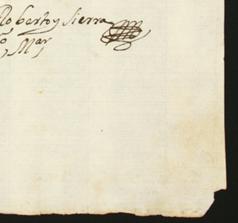 Roberto y Sierra
Mar